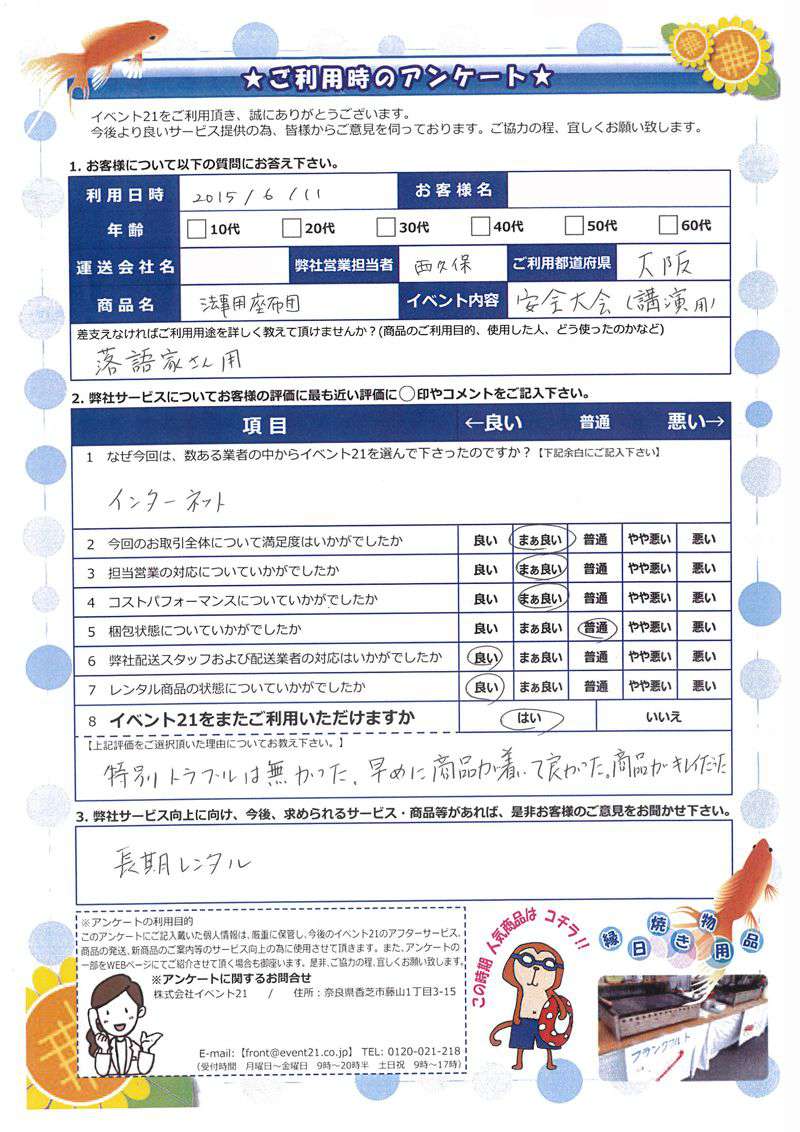 ★ご利用時のアンケート★
イベント21をご利用頂き、誠にありがとうございます。
今後より良いサービス提供の為、皆様からご意見を伺っております。ご協力の程、宜しくお願い致します。
1. お客様について以下の質問にお答え下さい。
利用日時 2015/6/11 お客様名
年齢 10代 20代 30代 40代 50代 60代
運送会社名 弊社営業担当者 西久保 ご利用都道府県 大阪
商品名 法事用座布団 イベント内容 安全大会(講演用)
差支えなければご利用用途を詳しく教えて頂けませんか?(商品のご利用目的、使用した人、どう使ったのかなど)
落語家さん用
2. 弊社サービスについてお客様の評価に最も近い評価に○印やコメントをご記入下さい。
項目 ←良い 普通 悪い→
1 なぜ今回は、数ある業者の中からイベント21を選んで下さったのですか?【下記余白にご記入下さい】
インターネット
2 今回のお取引全体について満足度はいかがでしたか 良い まぁ良い 普通 やや悪い 悪い
3 担当営業の対応についていかがでしたか 良い まぁ良い 普通 やや悪い 悪い
4 コストパフォーマンスについていかがでしたか 良い まぁ良い 普通 やや悪い 悪い
5 梱包状態についていかがでしたか 良い まぁ良い 普通 やや悪い 悪い
6 弊社配送スタッフおよび配送業者の対応はいかがでしたか 良い まぁ良い 普通 やや悪い 悪い
7 レンタル商品の状態についていかがでしたか 良い まぁ良い 普通 やや悪い 悪い
8 イベント21をまたご利用いただけますか はい いいえ
【上記評価をご選択頂いた理由についてお教え下さい。】
特別トラブルは無かった、早めに商品が着いて良かった。商品がキレイだった
3. 弊社サービス向上に向け、今後、求められるサービス・商品等があれば、是非お客様のご意見をお聞かせ下さい。
長期レンタル
※アンケートの利用目的
このアンケートにご記入戴いた個人情報は、厳重に保管し、今後のイベント21のアフターサービス、
商品の発送、新商品のご案内等のサービス向上の為に使用させて頂きます。また、アンケートの
一部をWEBページにてご紹介させて頂く場合も御座います。是非、ご協力の程、宜しくお願い致します。
※アンケートに関するお問合せ
株式会社イベント21 / 住所:奈良県香芝市藤山1丁目3-15
E-mail:【front@event21.co.jp】 TEL: 0120-021-218
(受付時間 月曜日~金曜日 9時~20時半 土日祝 9時~17時)
この時期人気商品は コチラ!!
縁日焼き物用品
フランクフルト